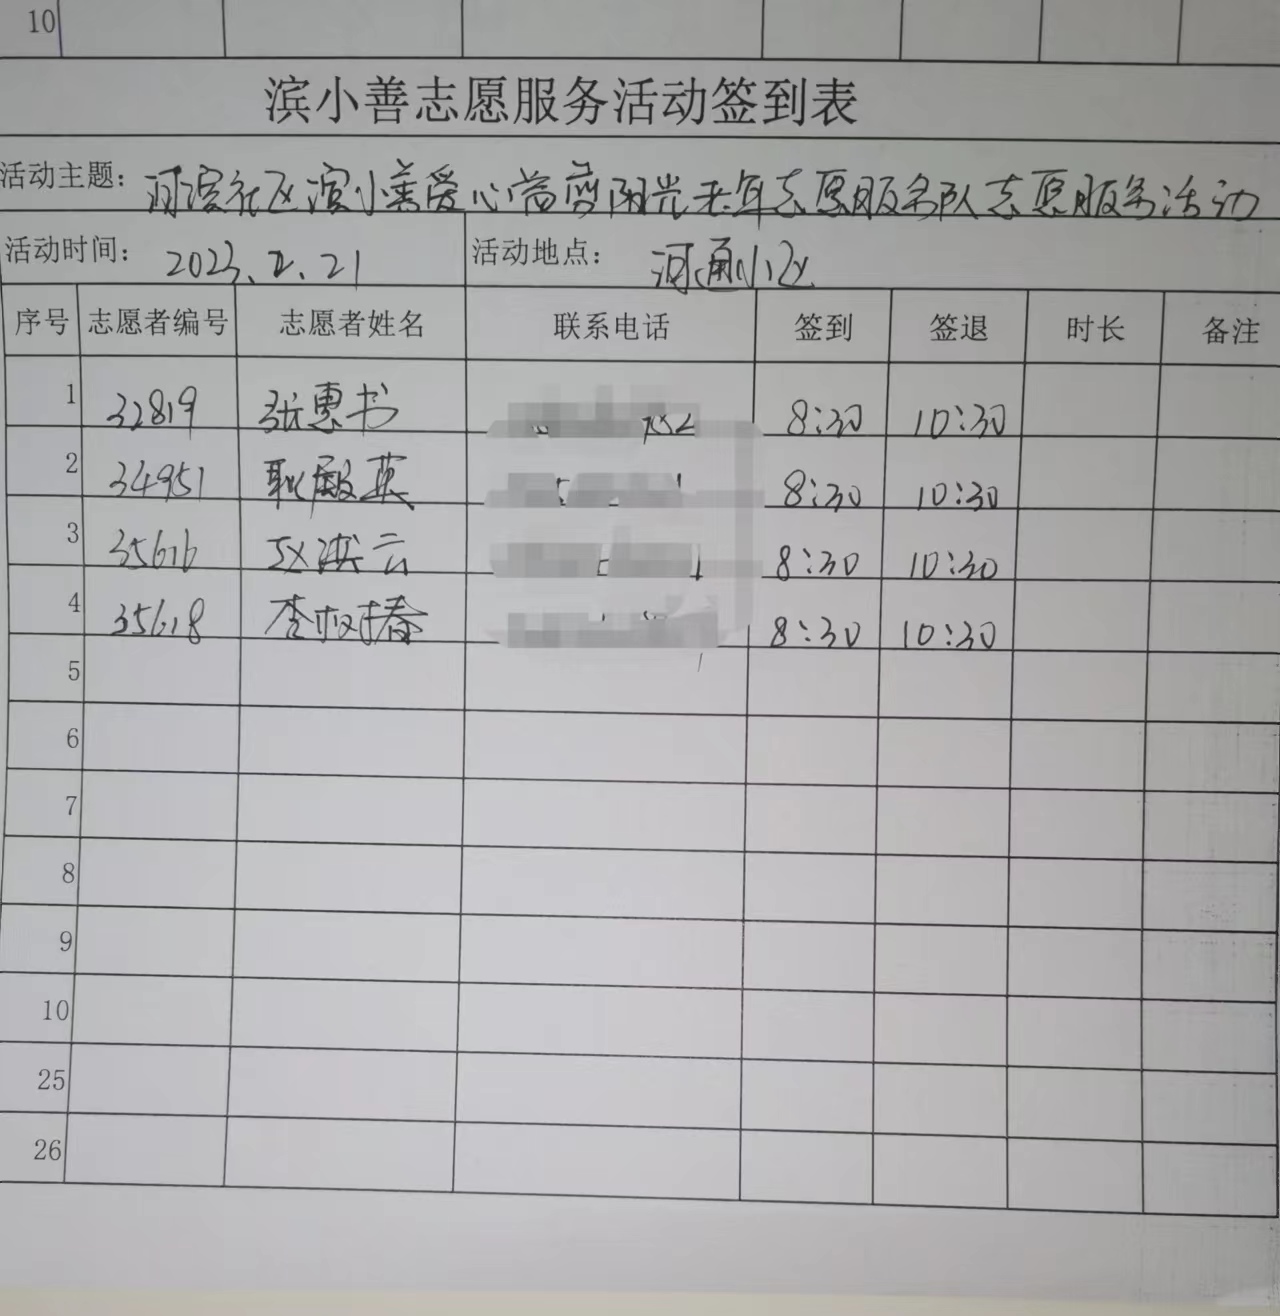 10
滨小善志愿服务活动签到表
活动主题：河滨社区滨小善爱心常朙阳光老年志愿服务队志愿服务活动
活动时间：2023.2.21 活动地点：河通小区
序号 志愿者编号 志愿者姓名 联系电话 签到 签退 时长 备注
1 32819 张惠书 8:30 10:30
2 34951 耿殿英 8:30 10:30
3 35616 赵洪云 8:30 10:30
4 35618 李树椿 8:30 10:30
5
6
7
8
9
10
25
26